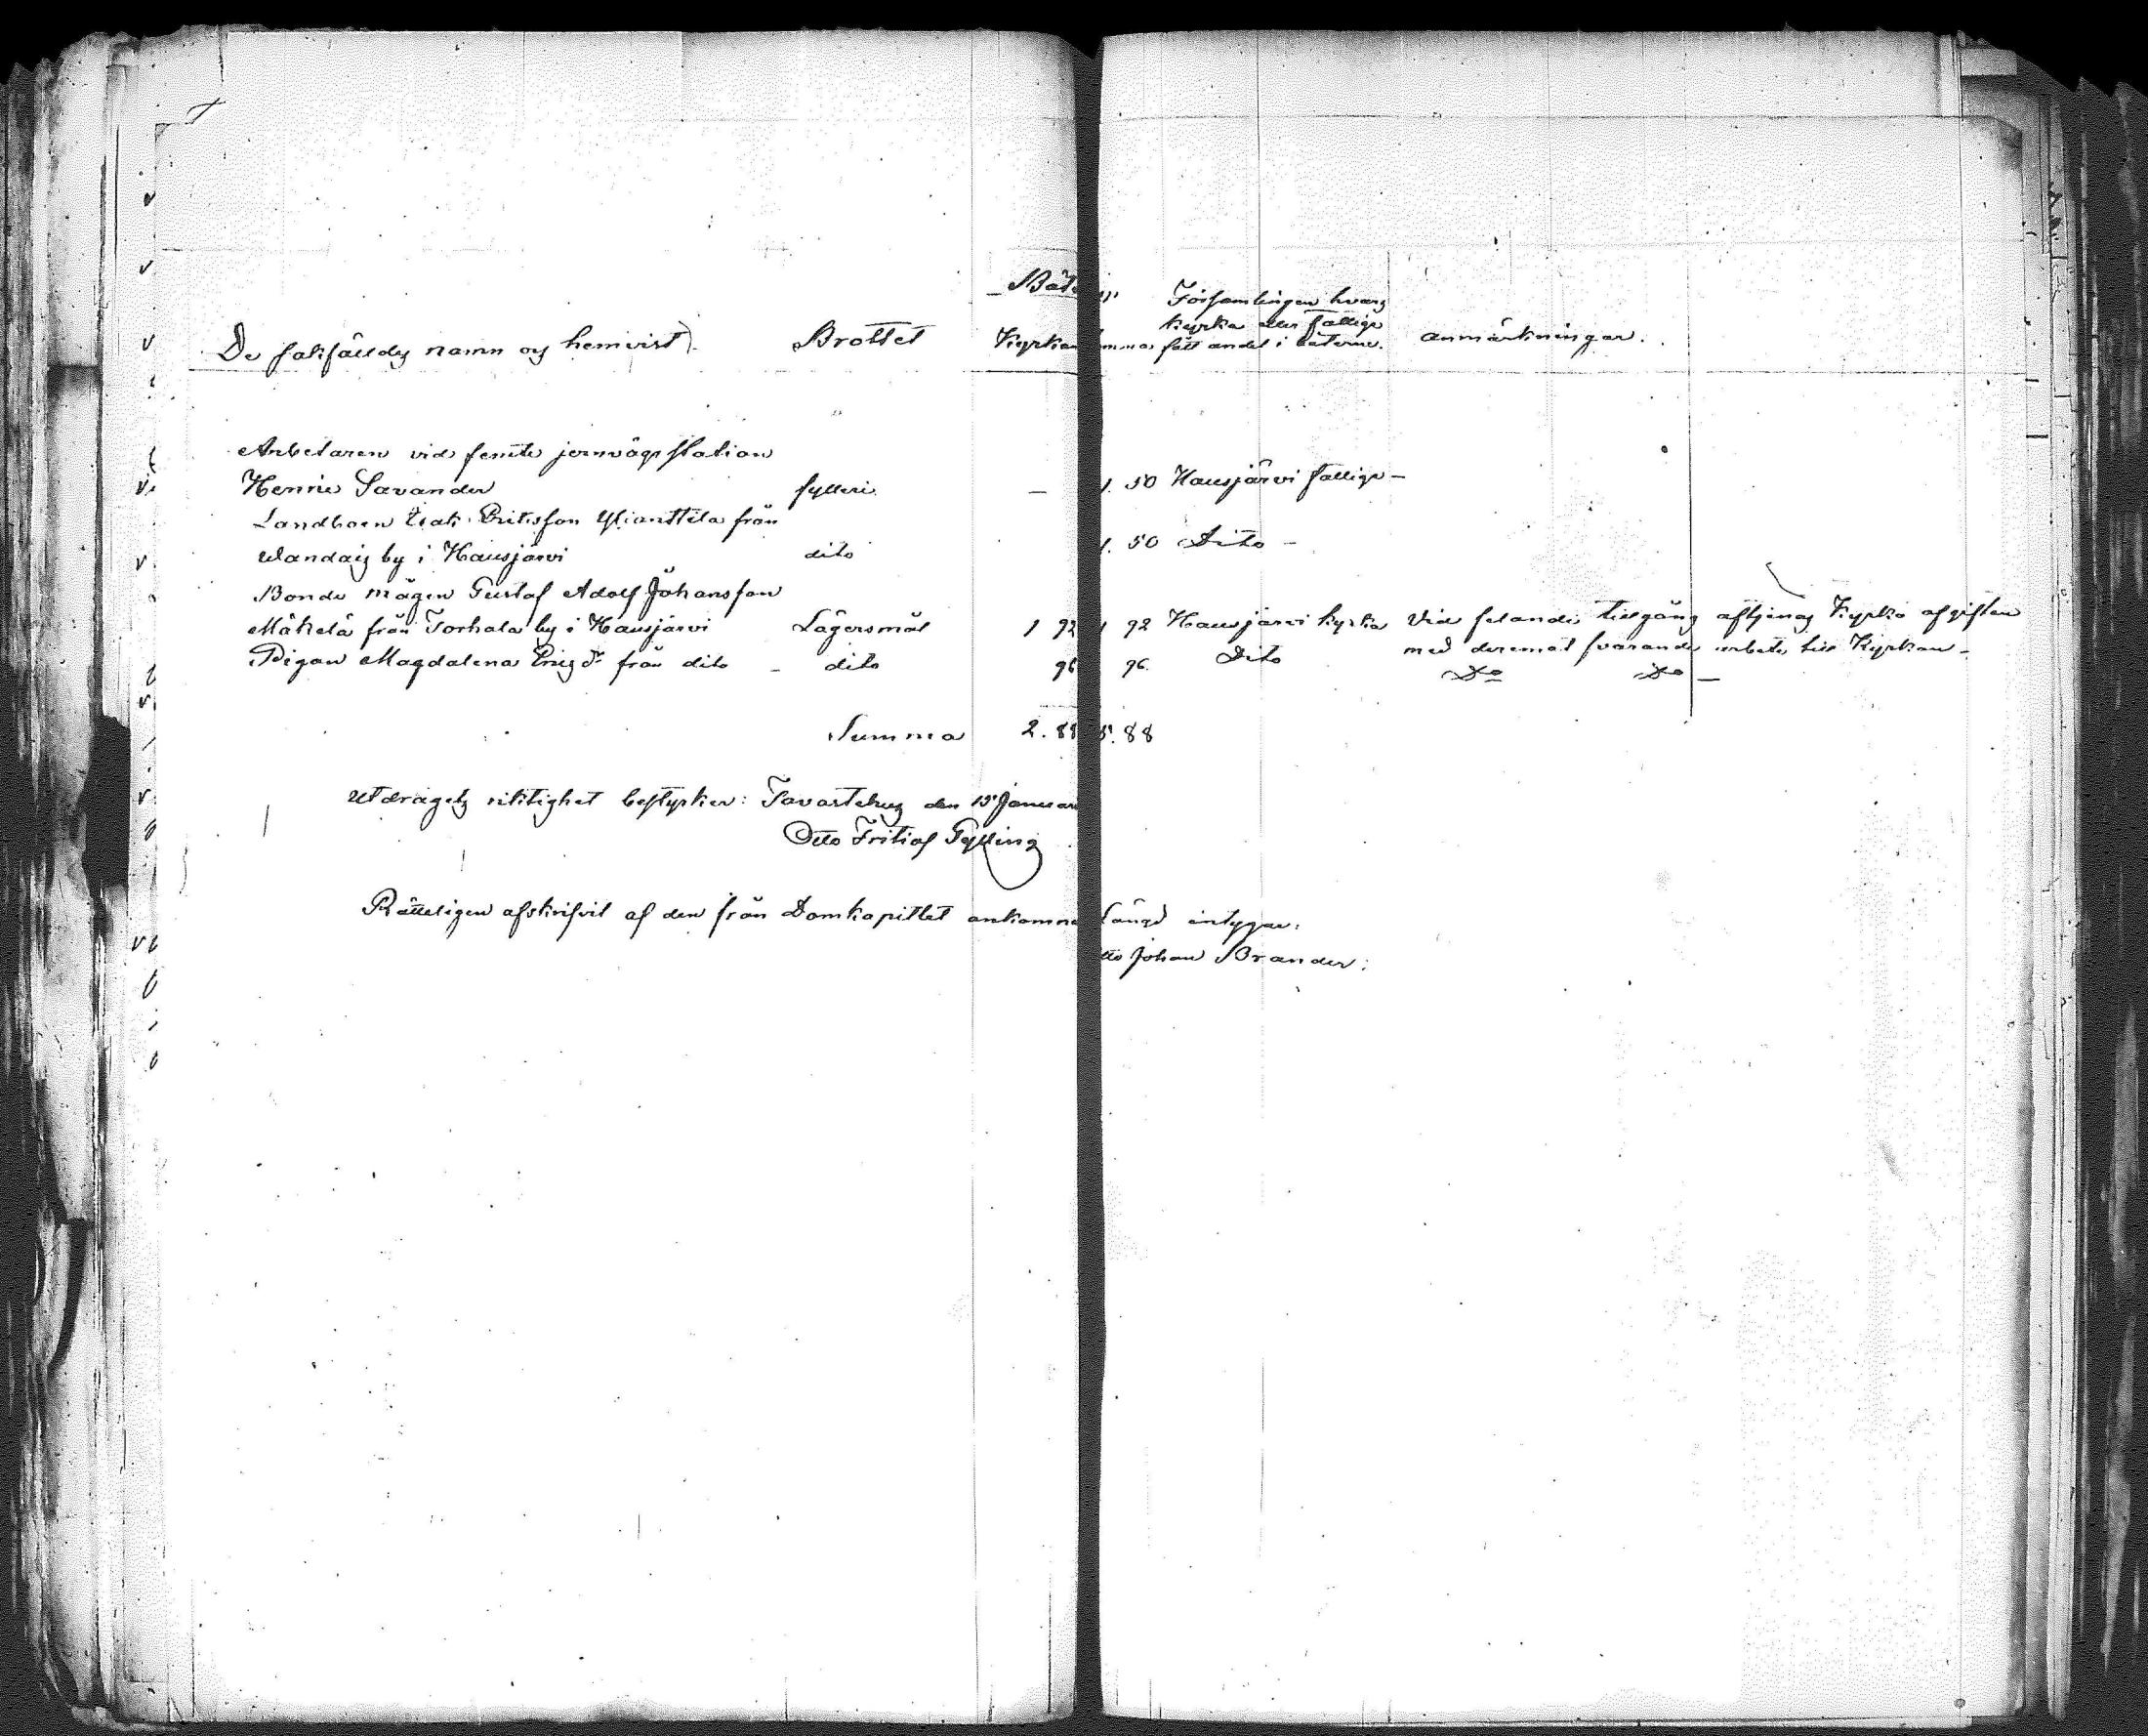 Böter
De sakfälldes namn og hemvist. Brottet Kyrkan Summa Församlingen hvars kyrka eller fattige fått andel i böterne. anmärkningar.
Arbetaren vid femte jernvägs station
Henric Savander fylleri — 1. 50 Hausjärvi fattige —
Landboen Isak Eriksson Ylianttila från
by i Hausjärvi dito 1. 50 Dito —
Bonde mågen Gustaf Adolf Johansson
Mäkelä från Torhola by i Hausjärvi Lägersmål 1 92 1 92 Hausjärvi kyrka Vid felande tillgång aftjenas Kyrko afgiften
med deremot svarande arbete till Kyrkan —
Pigan Magdalena Ericsdr från dito — dito 96 96. Dito Do Do —
Summa 2. 88 5. 88
Utdragets riktighet bestyrker: Tavastehus den 15 Januari
Otto Fritiof Gylling
Rätteligen afskrifvit af den från Domkapitlet ankomne Längd intygar:
Johan Brander: